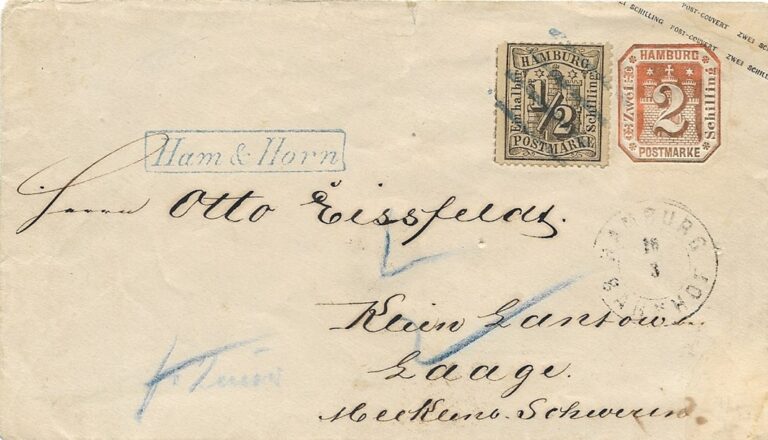 POST-COUVERT ZWEI SCHILLING
SCHILLING POST-COUVERT ZWEI SCHILLING
HAMBURG
Ein halber 1/2 Schilling
POSTMARKE
HAMBURG
Zwei 2 Schilling
POSTMARKE
Ham & Horn
Herrn Otto Eissfeldt.
HAMBURG
18
3
Klein Lantow
Laage.
Mecklenb. Schwerin